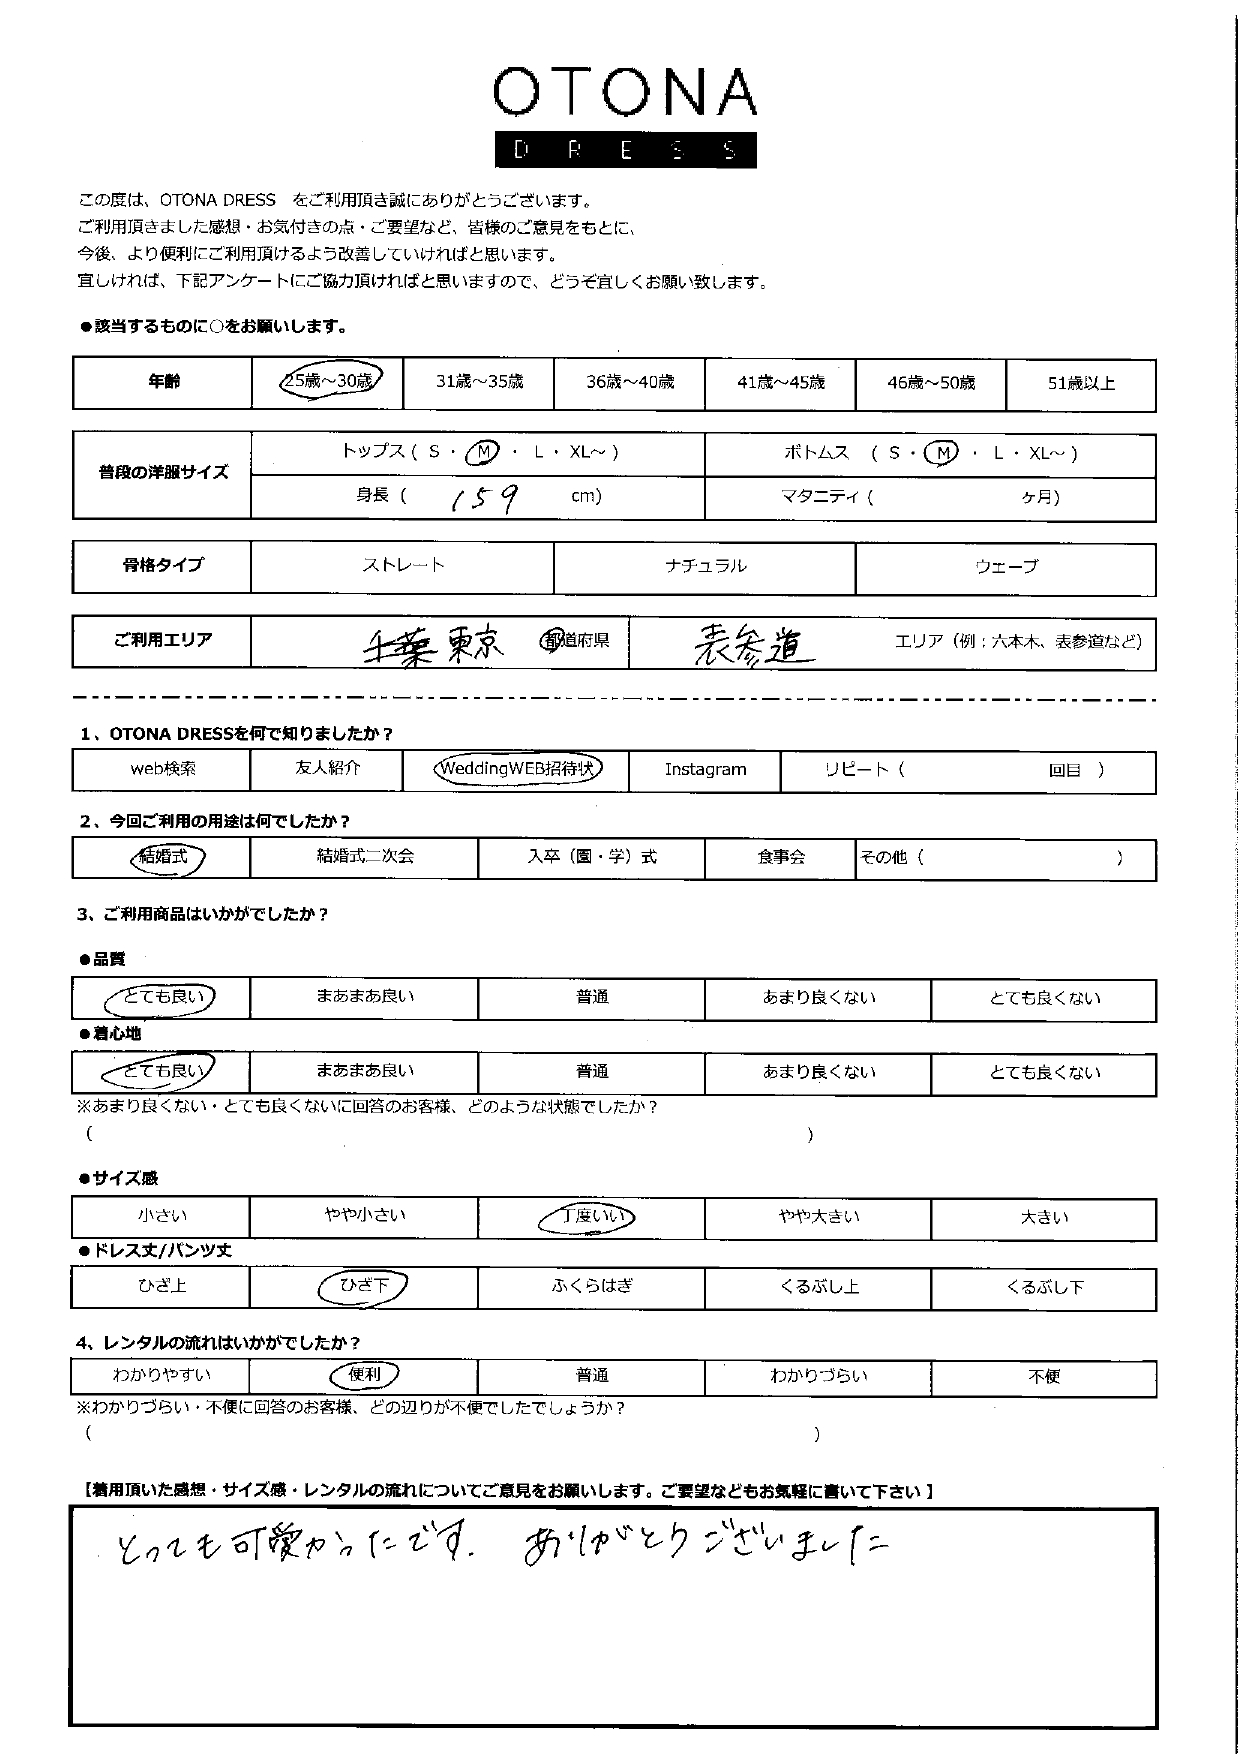 OTONA
DRESS
この度は、OTONA DRESS　をご利用頂き誠にありがとうございます。
ご利用頂きました感想・お気付きの点・ご要望など、皆様のご意見をもとに、
今後、より便利にご利用頂けるよう改善していければと思います。
宜しければ、下記アンケートにご協力頂ければと思いますので、どうぞ宜しくお願い致します。
●該当するものに○をお願いします。
年齢 25歳～30歳 31歳～35歳 36歳～40歳 41歳～45歳 46歳～50歳 51歳以上
普段の洋服サイズ トップス ( S ・ M ・ L ・ XL～ ) ボトムス ( S ・ M ・ L ・ XL～ )
身長 ( 159 cm) マタニティ ( ヶ月)
骨格タイプ ストレート ナチュラル ウェーブ
ご利用エリア 千葉 東京 都道府県 表参道 エリア（例：六本木、表参道など）
1、OTONA DRESSを何で知りましたか？
web検索 友人紹介 WeddingWEB招待状 Instagram リピート（ 回目 ）
2、今回ご利用の用途は何でしたか？
結婚式 結婚式二次会 入卒（園・学）式 食事会 その他（ ）
3、ご利用商品はいかがでしたか？
●品質
とても良い まあまあ良い 普通 あまり良くない とても良くない
●着心地
とても良い まあまあ良い 普通 あまり良くない とても良くない
※あまり良くない・とても良くないに回答のお客様、どのような状態でしたか？
( )
●サイズ感
小さい やや小さい 丁度いい やや大きい 大きい
●ドレス丈/パンツ丈
ひざ上 ひざ下 ふくらはぎ くるぶし上 くるぶし下
4、レンタルの流れはいかがでしたか？
わかりやすい 便利 普通 わかりづらい 不便
※わかりづらい・不便に回答のお客様、どの辺りが不便でしたでしょうか？
( )
【着用頂いた感想・サイズ感・レンタルの流れについてご意見をお願いします。ご要望などもお気軽に書いて下さい】
とっても可愛かったです. ありがとうございました